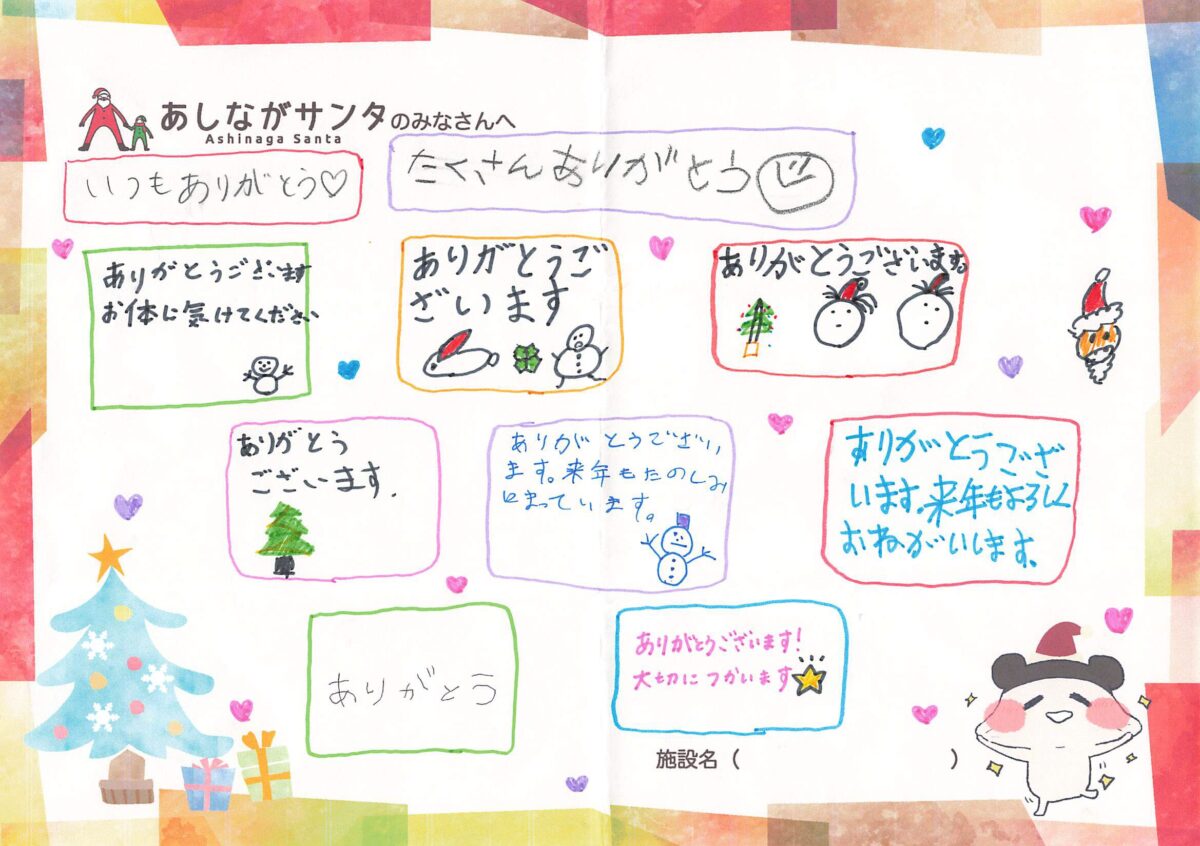 あしながサンタのみなさんへ
Ashinaga Santa
いつもありがとう♡
たくさんありがとう
ありがとうございます
お体に気けてください
ありがとうご
ざいます
ありがとうございます。
ありがとう
ございます.
ありがとうござい
ます。来年もたのしみ
にまっています。
ありがとうござ
います。来年もよろしく
おねがいします。
ありがとう
ありがとうございます!
大切につかいます
施設名 ( )